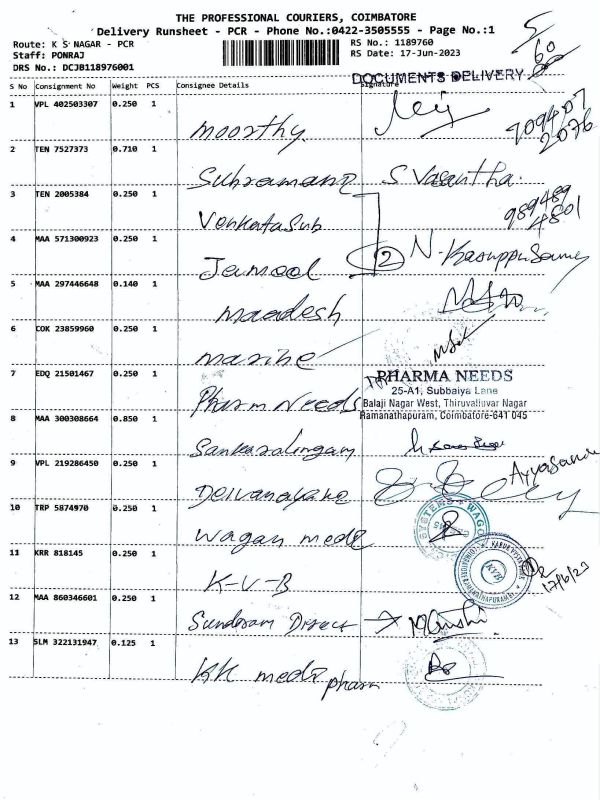 THE PROFESSIONAL COURIERS, COIMBATORE
Delivery Runsheet - PCR - Phone No.:0422-3505555 - Page No.:1
Route: K S NAGAR - PCR
Staff: PONRAJ
DRS No.: DCJB118976001
RS No.: 1189760
RS Date: 17-Jun-2023
5
60
DOCUMENTS DELIVERY
S No Consignment No Weight PCS Consignee Details Signature
1 VPL 402503307 0.250 1 Moorthy
709407
2076
2 TEN 7527373 0.710 1 Subramana S Vasantha.
3 TEN 2005384 0.250 1 VenkataSub
989489
4801
4 MAA 571300923 0.250 1 Jamool 2 N. Karuppusamy
5 MAA 297446648 0.140 1 maadesh
6 COK 23859960 0.250 1 marine
7 EDQ 21501467 0.250 1 Pharm Needs
PHARMA NEEDS
25-A1, Subbaiya Lane
Balaji Nagar West, Thiruvalluvar Nagar
Ramanathapuram, Coimbatore-641 045
8 MAA 300308664 0.850 1 Sankaralingam
9 VPL 219286450 0.250 1 Deivanayaka
10 TRP 5874970 0.250 1 wagan medi
11 KRR 818145 0.250 1 K-V-B
17/6/23
12 MAA 860346601 0.250 1 Sundaram Direct →
13 SLM 322131947 0.125 1 KK medi pharm